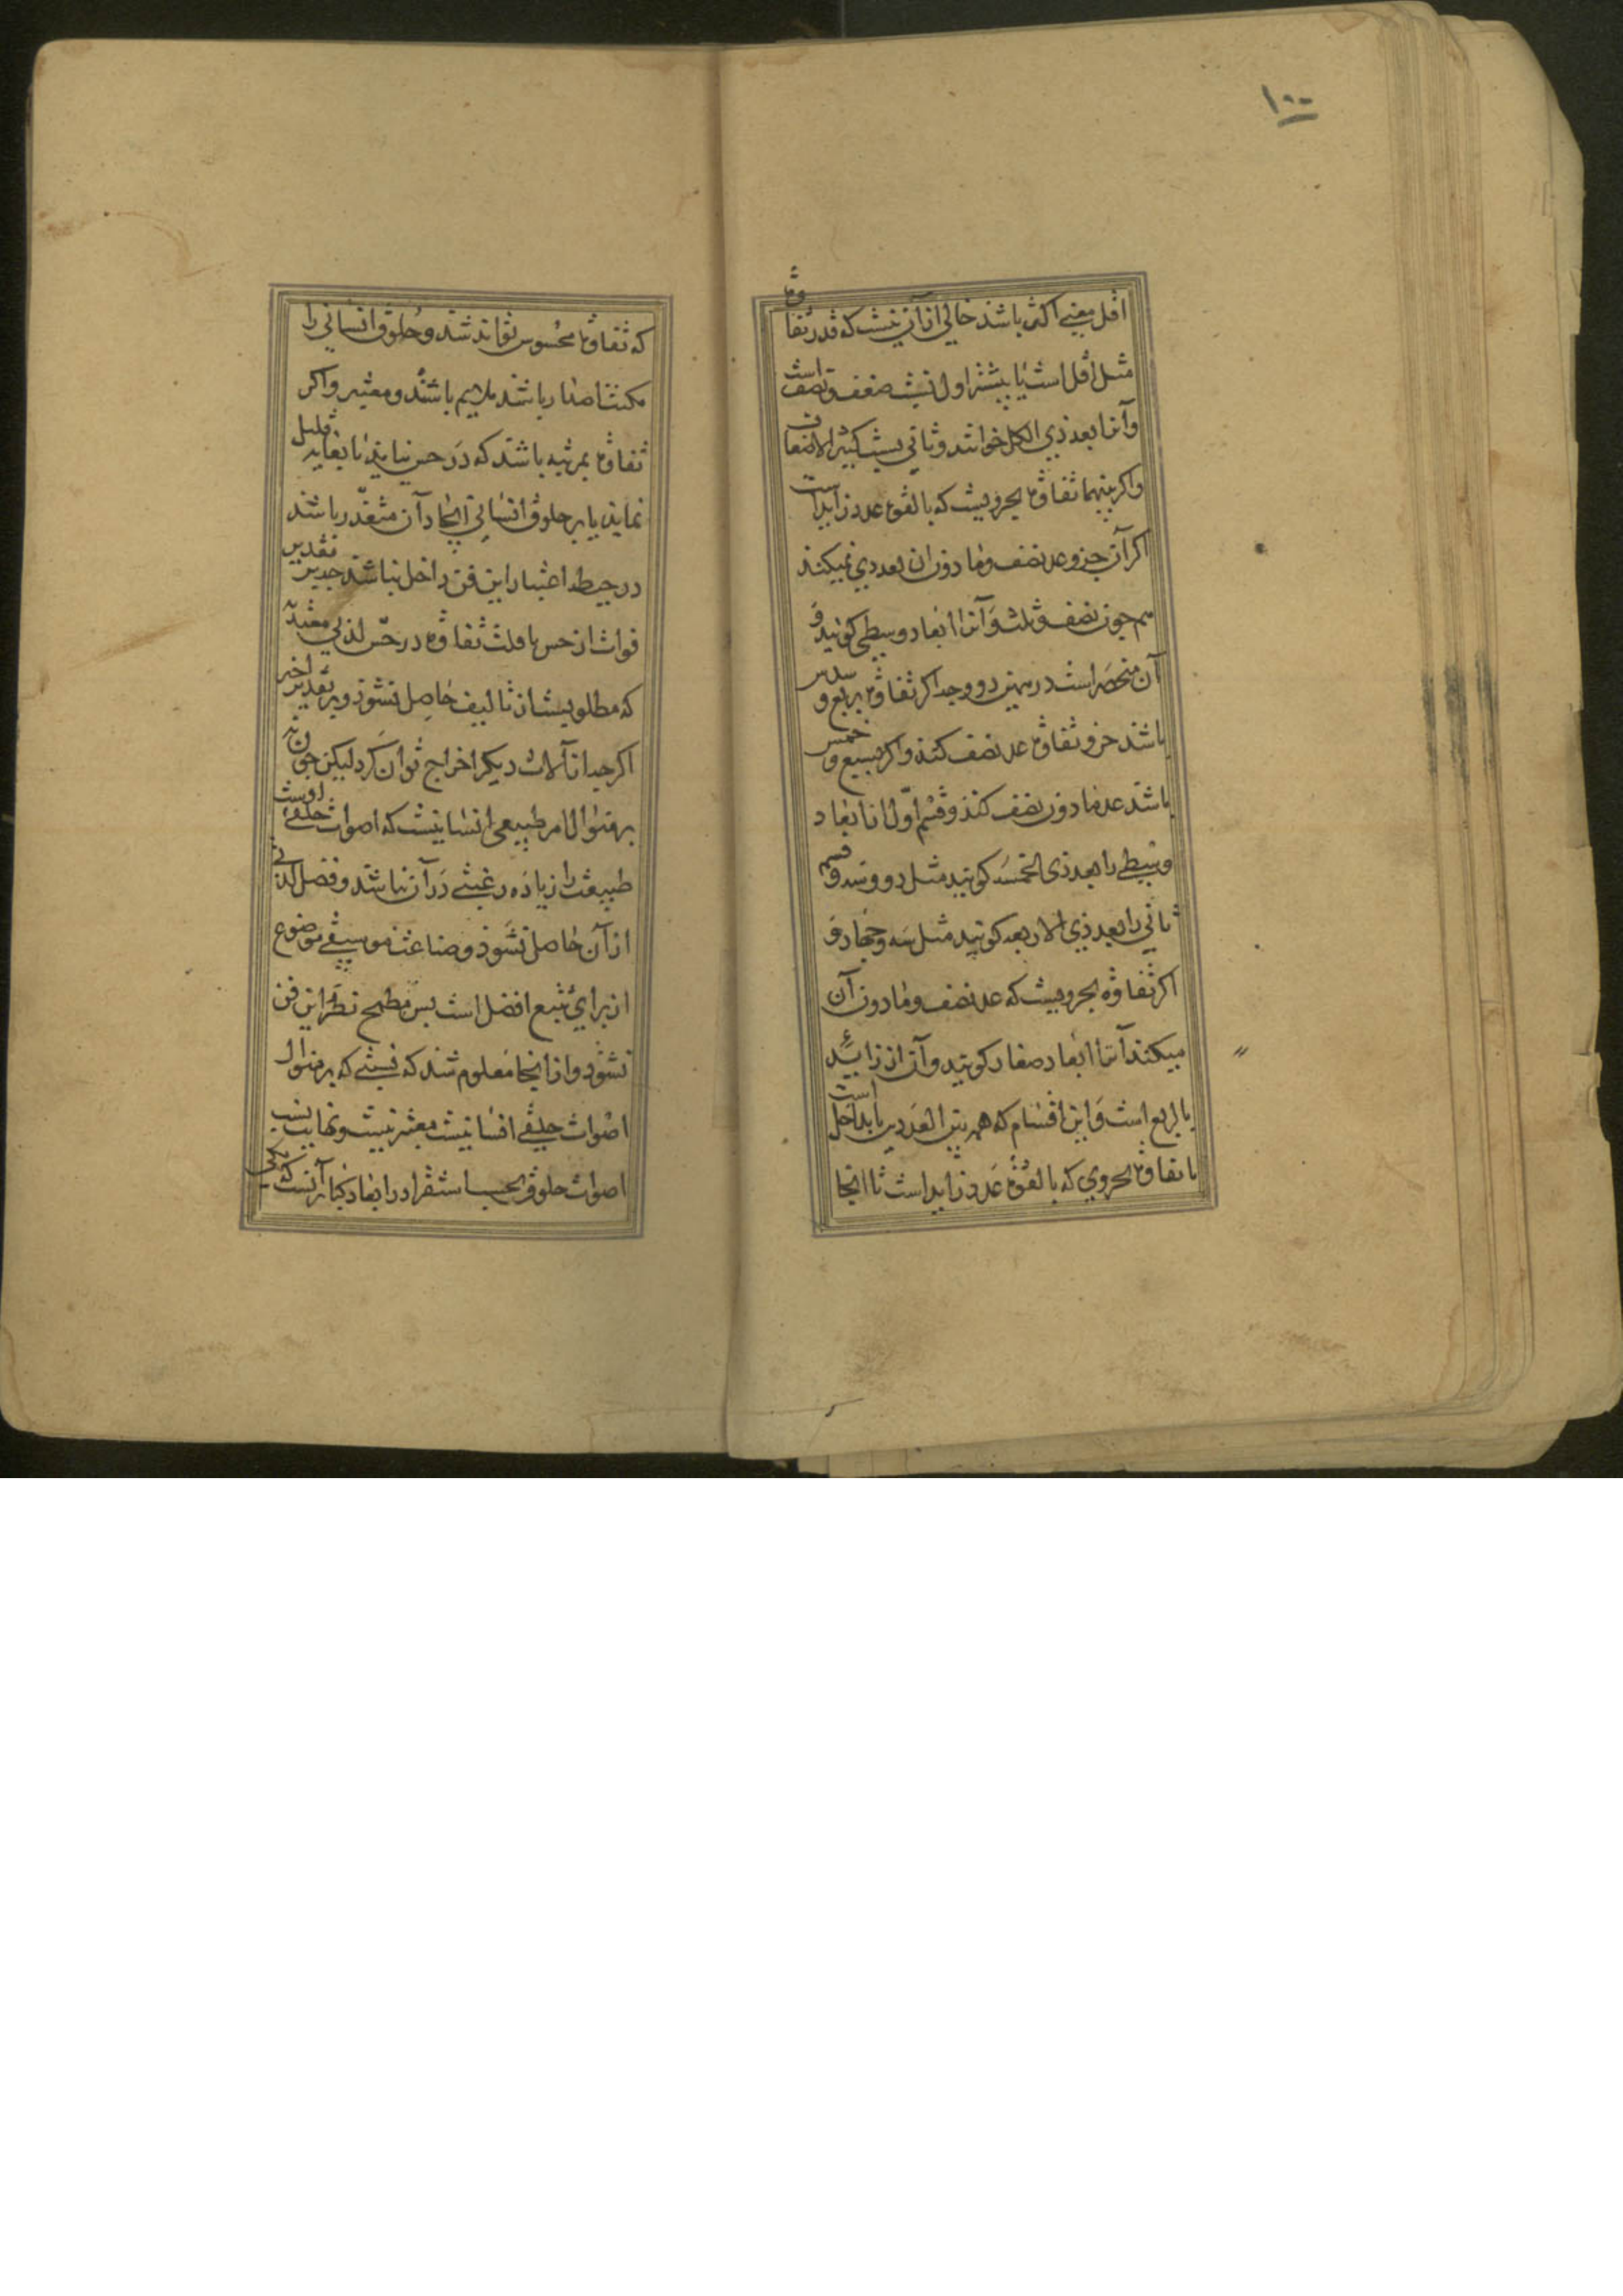 ١٠٠
اقل مغنی اکثر باشد خالی از آن نیست که قدر تفاوت
مثل اقل است یا بیشتر اول نسبت ضعف و نصف است
و آنرا بعد ذی الکل خوانند و ثانی نسبت کثیر الاضعاف
و اگر بینهما تفاوت بجزویست که بالقوه عدد زاید است
اگر آن جزو عد نصف و مادون آن بعددی نمیکند
هم چون نصف و ثلث و آنرا ابعاد وسطی گویند و
آن منحصر است در همین دو وجه اگر تفاوت بربع و سدس
باشد جزو تفاوت عد نصف کند و اگر بسبع و خمس
باشد عد مادون نصف کند و قسم اول از ابعاد
وسطی را بعد ذی الخمسه گویند مثل دو و سه و قسم
ثانی را بعد ذی الاربعه گویند مثل سه و چهار و
اگر تفاوت بجزویست که عد نصف و مادون آن
میکند آنرا ابعاد صغار گویند و آن از زاید
بالربع است و این اقسام که همه بین العددین یا بداخل است
یا تفاوت بجزوی که بالقوه عدد زاید است تا اینجا
که تفاوت محسوس تواند شد و حلوق انسانی را
مکنت اصدار باشد ملایم باشند و معتبر و اگر
تفاوت بمرتبه باشد که در حس نیاید یا بغایت قلیل
نماید یا بر حلوق انسانی ایجاد آن متعذر باشد
در حیطه اعتبار این فن داخل نباشد چه بر تقدیر
فوات از حس یا قلت تفاوت در حس لذتی معتد به
که مطلوبست از تالیف حاصل نشود و بر تقدیر اخیر
اگر چه از آلات دیگر اخراج توان کرد لیکن چون نه
بر منوال امر طبیعی انسانیست که اصوات حلقی اوست
طبیعت را زیاده رغبتی در آن نباشد و فضل لذتی
از آن حاصل نشود و صناعت موسیقی موضوع
از برای تتبع افضل است پس مطمح نظر این فن
نشود و از اینجا معلوم شد که نسبتی که بر منوال
اصوات حلقی انسانیست معتبر نیست و نهایت نسب
اصوات حلوق بحسب استقراء در ابعاد کبار آنست که یکی